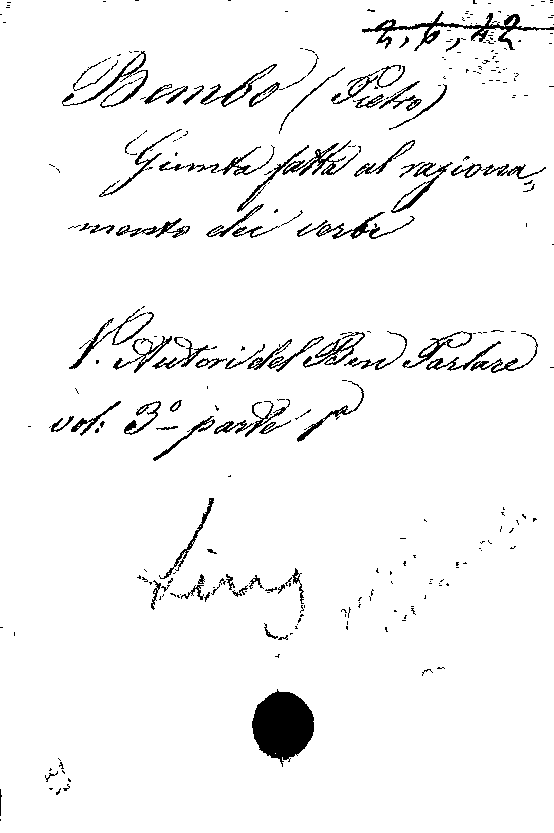 2, 6, 42
Bembo (Pietro)
Giunta fatta al ragiona=
mento dei verbi
V. Autori del Ben Parlare
vol: 3º parte 1ª
Ling